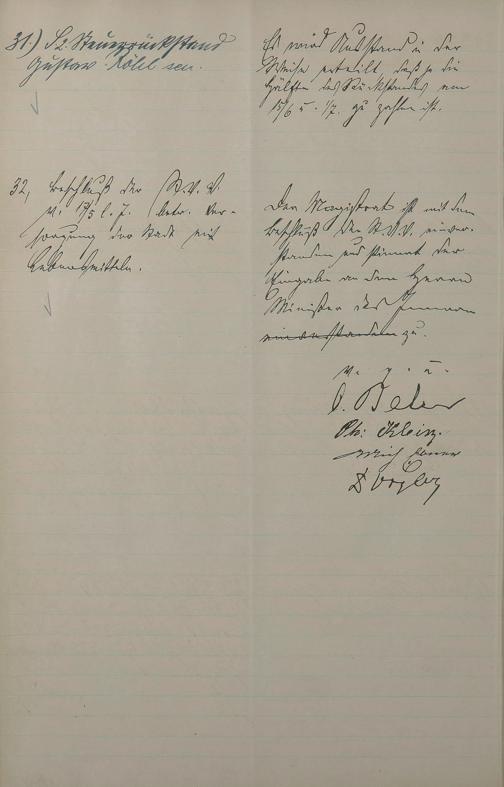 31.) Bz. Steuerrückstand
Gustav Köhl sen.
Es wird Ausstand in der
Weise erteilt, daß je die
Hälfte des Rückstandes am
15/6 u. 1/7. zu zahlen ist.
32, Beschluß der St.V.V.
v. 15/5 l. J. betr. Ver-
sorgung der Stadt mit
Lebensmitteln.
Der Magistrat ist mit dem
Beschluß der St.V.V. einver-
standen und stimmt der
Eingabe an den Herrn
Minister des Innern
einverstanden zu.
v. g. u.
Ph. Klein.